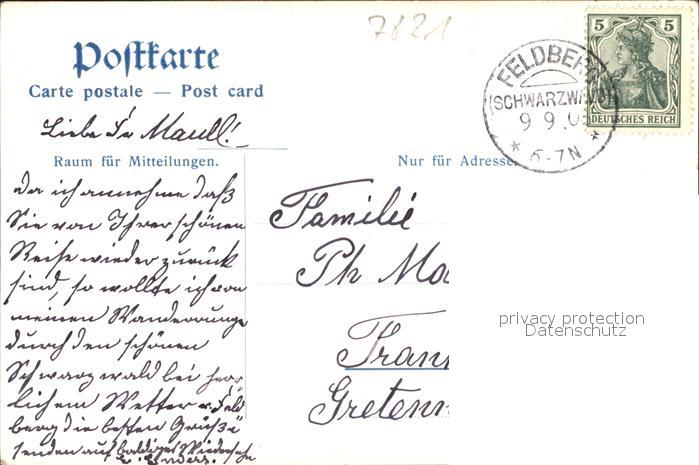 7821
Postkarte
Carte postale — Post card
Liebe Fr Maull!
Raum für Mitteilungen.
Nur für Adresse.
FELDBERG
(SCHWARZWALD)
9 9 0
* 6-7N *
5 5
DEUTSCHES REICH
Da ich annehme daß
Sie von Ihrer schönen
Reise wieder zurück
sind, so wollte ich von
meinen Wanderunge
durch den schönen
Schwarzwald bei herr
lichem Wetter v. Feld
berg die besten Grüße
senden auf baldiges Wiedersehn
Familie
Ph Ma
Fran
Greten
privacy protection
Datenschutz